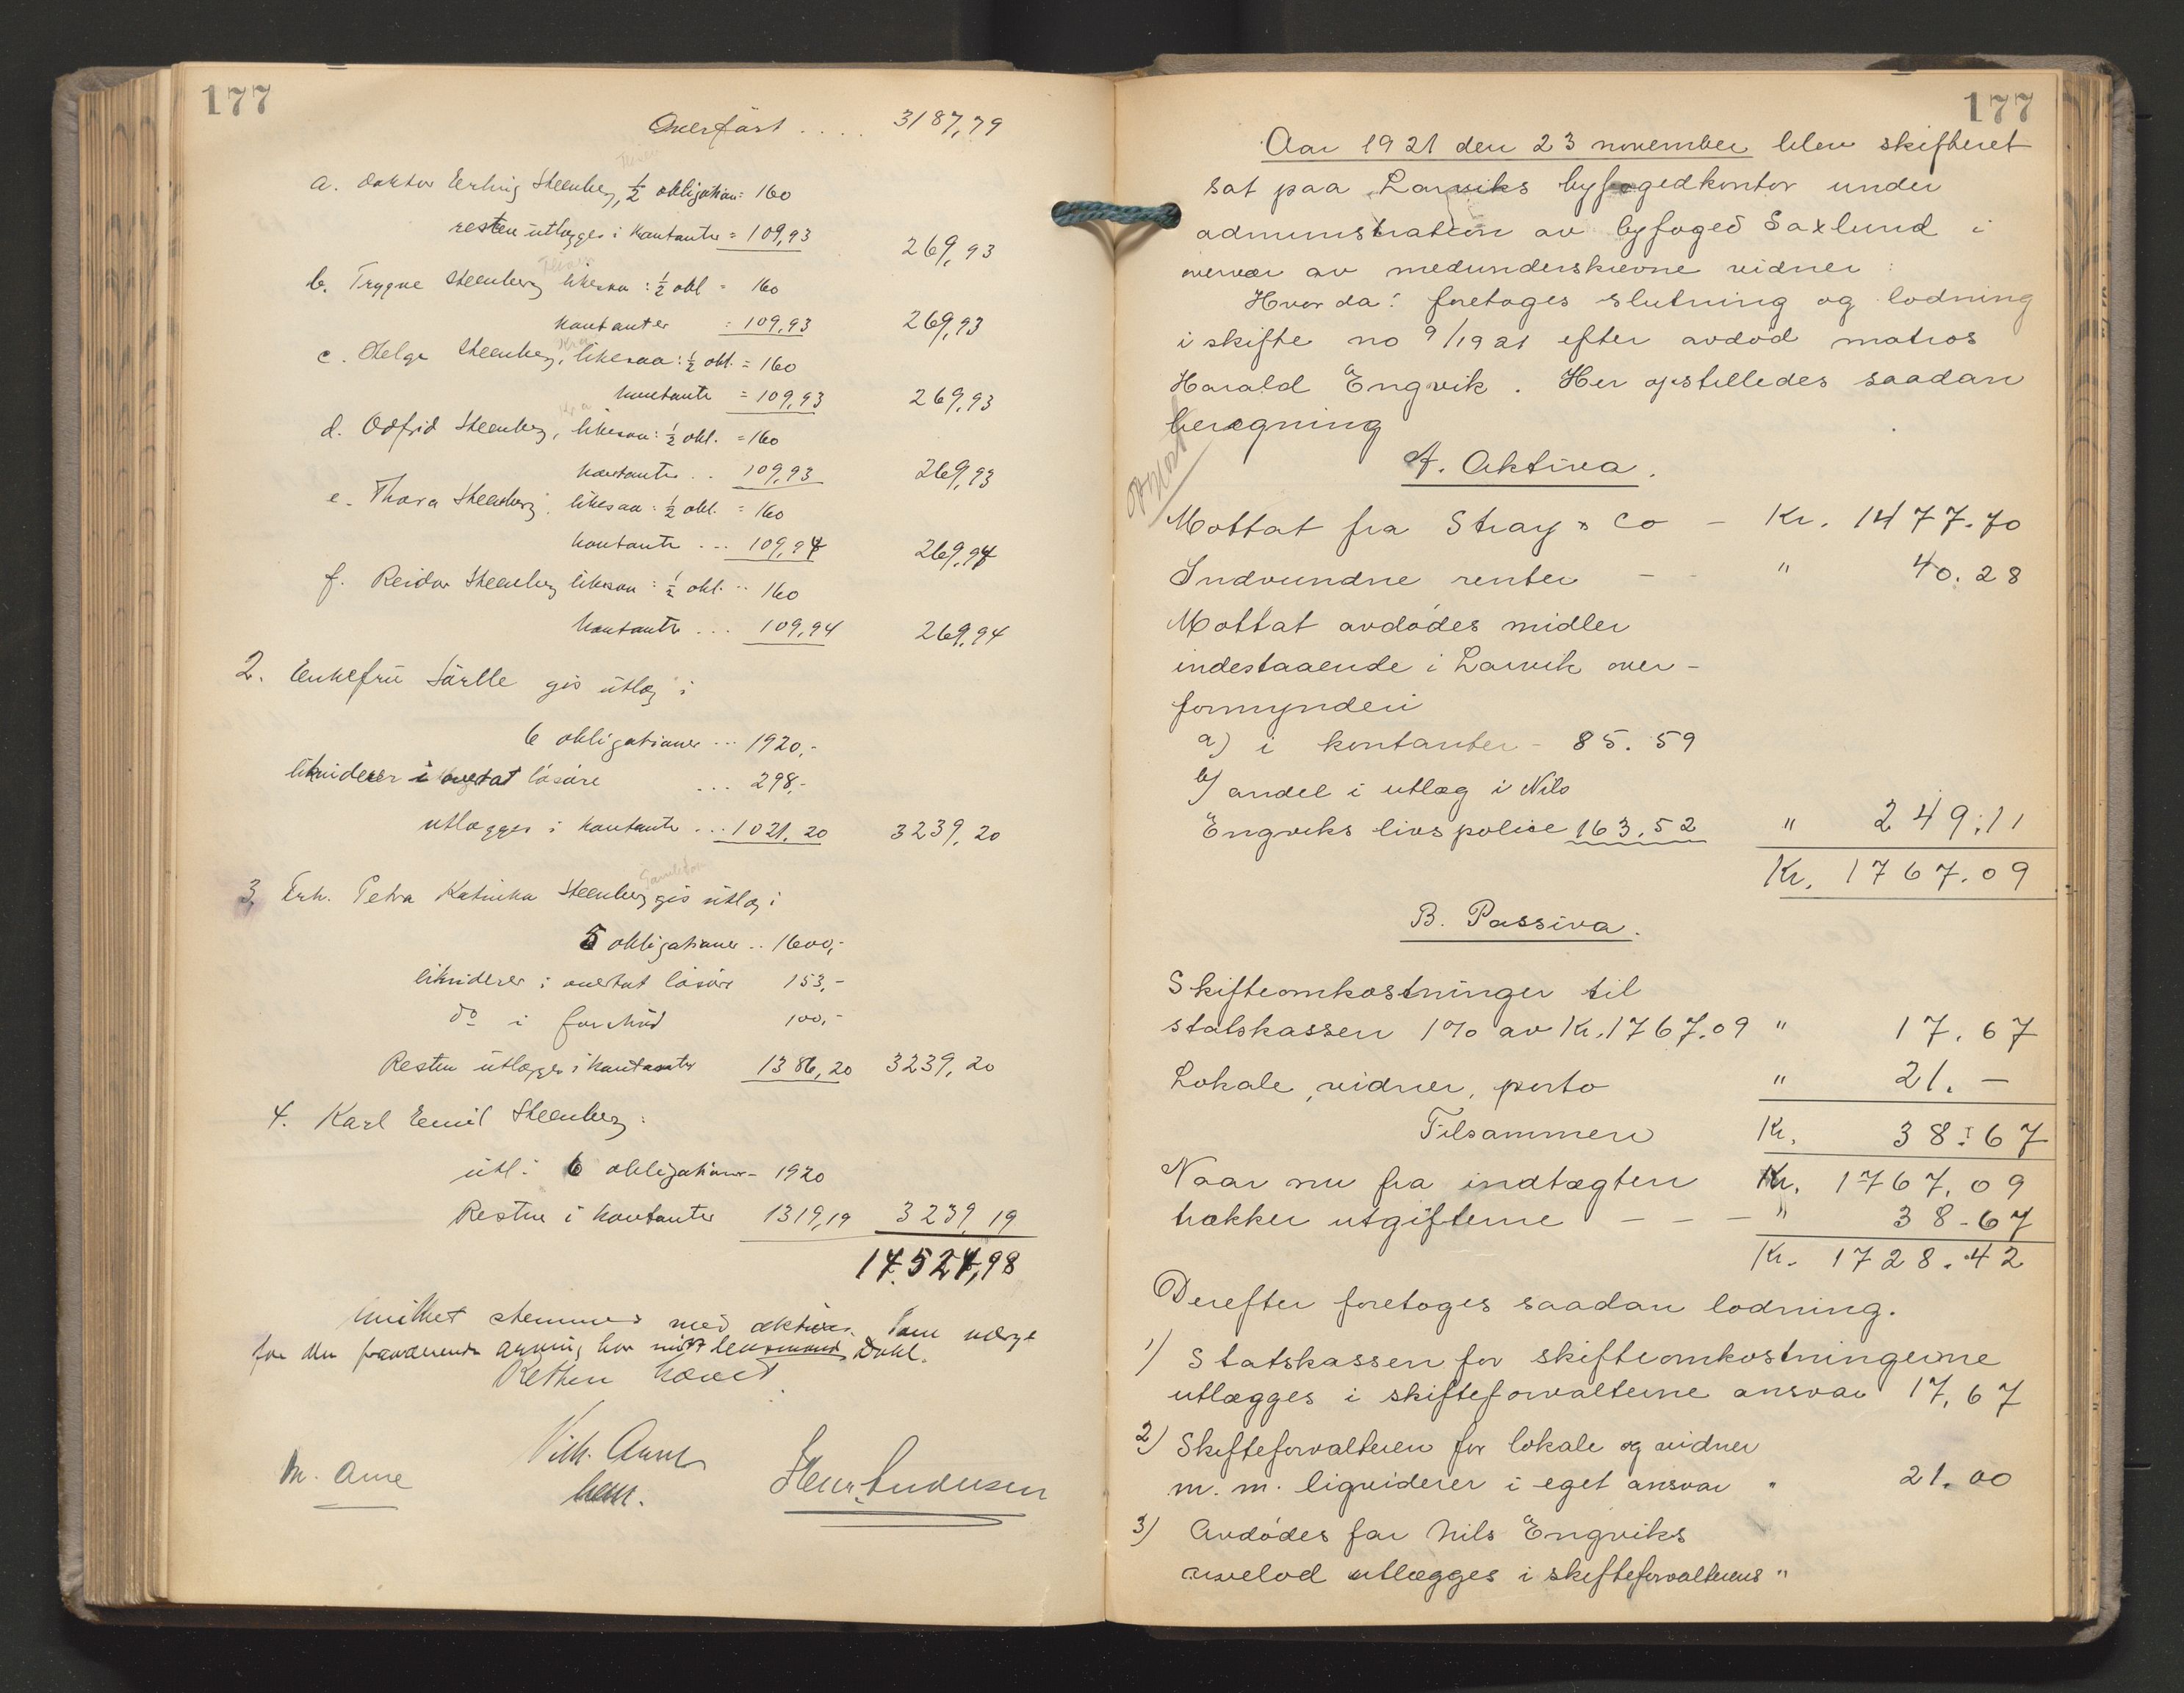 177
Overført .... 3187,79
a. Doktor Erling Steenberg, ½ obligation = 160
resten utlægges i kontanter = 109,93 269,93
b. Trygve Steenberg likesaa: ½ obl = 160
kontanter = 109,93 269,93
c. Helge Steenberg, likesaa: ½ obl. = 160
kontanter = 109,93 269,93
d. Odfrid Steenberg, likesaa: ½ obl. = 160
kontanter .. 109,93 269,93
e. Thora Steenberg, likesaa: ½ obl. = 160
kontanter ... 109,94 269,94
f. Reidar Steenberg likesaa: ½ obl. .. 160
kontanter ... 109,94 269,94
2. Enkefru gis utlæg i
6 obligationer ... 1920,-
likviderer i overtat løsøre ... 298,-
utlægges i kontanter ... 1021,20 3239,20
3, Enk. Petra Katinka Steenberg gis utlæg i
5 obligationer .. 1600,-
likviderer i overtat løsøre 153,-
do i forskud 100,-
Resten utlægges i kontanter 1386,20 3239,20
4. Karl Emil Steenberg:
utl. 6 obligationer - 1920
Resten i kontanter 1319,19 3239,19
14.524,98
hvilket stemmer med aktiva. Som værge
for den fraværende arving har møtt lensmand Dahl.
Retten hævet
M. Arne
Henr. Andersen
177
Aar 1921 den 23 november blev skifteret
sat paa Larviks byfogedkontor under
administration av byfoged Saxlund i
overvær av medunderskrevne vidner:
Hvor da: foretoges slutning og lodning
i skifte no 9/1921 efter avdød matros
Harald Engvik. Her opstilledes saadan
beregning
A. Aktiva.
Mottat fra Stray & Co - Kr. 1477.70
Indvundne renter - - " 40.28
Mottat avdødes midler
indestaaende i Larvik over-
formynderi
a) i kontanter - 85.59
b) andel i utlæg i Nils
Engviks livspolice 163.52 " 249.11
Kr. 1767.09
B. Passiva.
Skifteomkostninger til
statskassen 1% av Kr. 1767.09 " 17.67
Lokale, vidner, porto " 21.-
Tilsammen Kr. 38.67
Naar nu fra indtægten Kr. 1767.09
trækkes utgifterne - - - " 38-67
Kr. 1728.42
Derefter foretoges saadan lodning.
1) Statskassen for skifteomkostningerne
utlægges i skifteforvalterne ansvar 17.67
2) Skifteforvalteren for lokale og vidner
m.m. ligviderer i eget ansvar " 21.00
3) Avdødes far Nils Engviks
arvelod utlægges i skifteforvalterens "